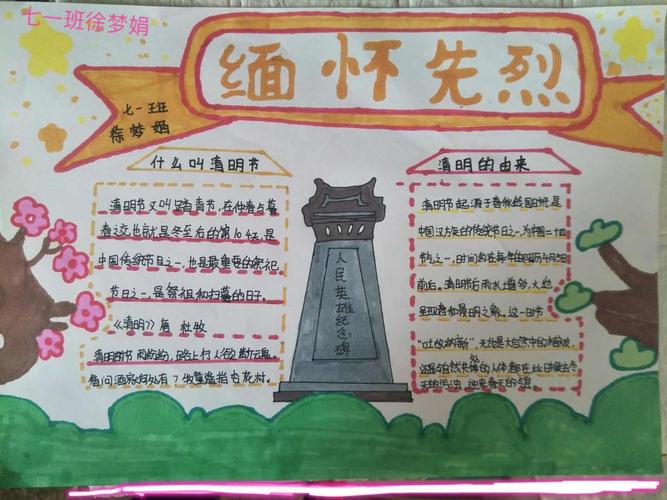 七一班徐梦娟
缅怀先烈
七一班
徐梦娟
什么叫清明节
清明节又叫踏青节,在仲春与暮
春之交,也就是冬至后的第10
中国传统节日之一,也是最重要的祭祀
节日之一,是祭祖和扫墓的日子。
《清明》唐 杜牧
清明时节雨纷纷,路上行人欲断魂。
借问酒家何处有?牧童遥指杏花村。
人民英雄纪念碑
清明的由来
清明节起源于春秋战国时期,是
中国汉方矣的传统节日之一,为中国二十四
节气之一,时间约在每年的阳历4月5日
前后。清明节后雨水增多,大地
呈现春和景明之象。这一时节
"吐故纳新",无论是大自然中的植被,